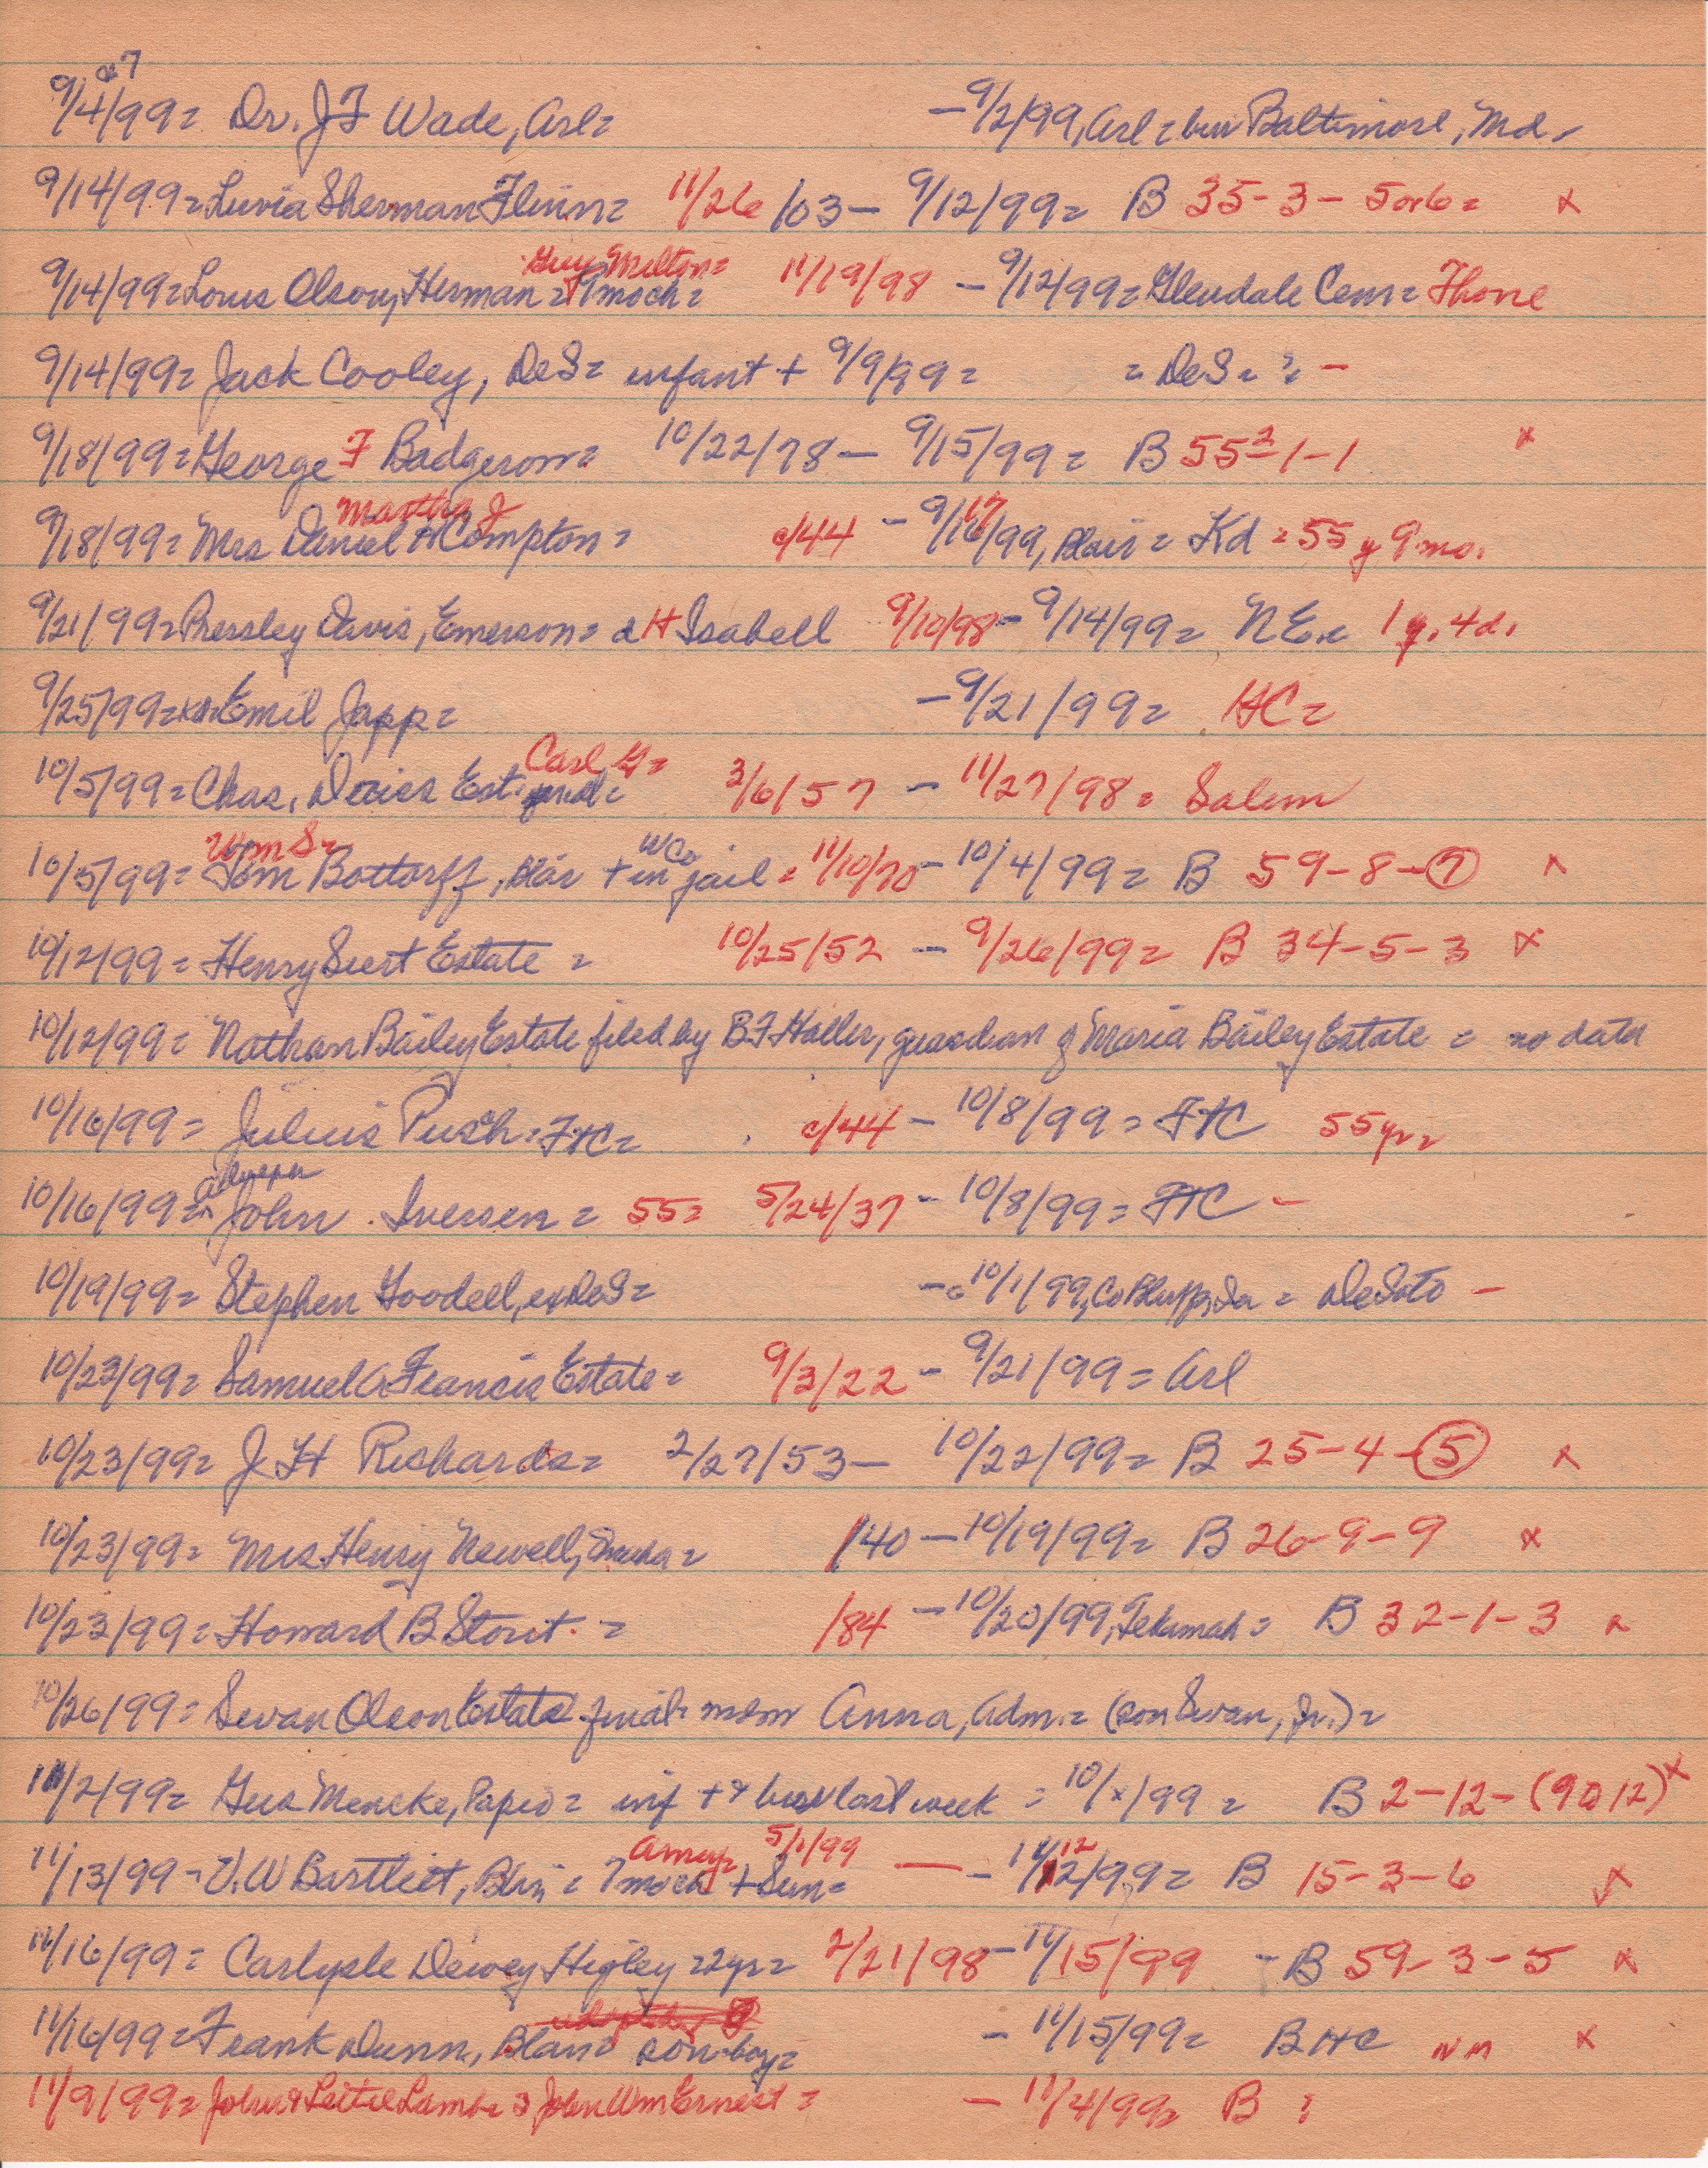 & 7
9/4/99= Dr. J F Wade, Arl= - 9/2/99, Arl = bur Baltimore, Md.
9/14/99= Luvia Sherman Flinn= 11/26/03 - 9/12/99= B 35-3-5or6= x
Guy Milton=
9/14/99= Louis Olson, Herman = 9moch= 11/19/98 - 9/12/99= Glendale Cem= Thone
9/14/99= Jack Cooley, DeS= infant + 9/9/99= = DeS= ? -
9/18/99= George F Badgerow= 10/22/78 - 9/15/99= B 55²-1-1 x
Martha J
9/18/99= Mrs Daniel H Compton= c/44 - 9/16/99, Blair = Kd = 55 y 9 mo.
17
9/21/99= Pressley Davis, Emerson= d H Isabell 9/10/98 - 9/14/99= N E.= 1 y. 4 d.
9/25/99= Emil Japp= - 9/21/99= HC=
Carl G=
10/5/99= Chas. Est. 3/6/57 - 11/27/98= Salem
Wm S= W Co
10/5/99= Tom Bottorff, Blair + in jail= 11/10/70 - 10/4/99= B 59-8-7 x
10/12/99= Henry Siert Estate = 10/25/52 - 9/26/99= B 34-5-3 x
10/12/99= Nathan Bailey Estate filed by B F Haller, guardian of Maria Bailey Estate = no data
10/16/99= Julius Pusch= FtC= c/44 - 10/8/99= FtC 55 yr=
10/16/99= John Iversen = 55= 5/24/37 - 10/8/99= FtC -
10/19/99= Stephen Goodell, ex DeS= - 10/1/99, Co Bluffs, Ia = DeSoto -
10/23/99= Samuel A Francis Estate= 9/3/22 - 9/21/99= Arl
10/23/99= J H Richards= 2/27/53 - 10/22/99= B 25-4-5 x
10/23/99= Mrs Henry Newell, Omaha= /40 - 10/19/99= B 26-9-9 x
10/23/99= Howard B Stout = /84 - 10/20/99, Tekamah= B 32-1-3 x
10/26/99= Swan Olson Estate final= Anna, Adm.= (son Swan, Jr.)=
11/2/99= Gus Mencke, Papio= inf + & bur last week = 10/x/99 = B 2-12-(9 or 12) x
Amy= 5/1/99 12
11/13/99= V.W Bartlett, Blair = 7moch + Sun= - 11/12/99= B 15-3-6 x
11/16/99= Carlysle Dewey Higley =2yr= 2/21/98 - 11/15/99 - B 59-3-5 x
11/16/99= Frank Dunn, Blair= son-boy= - 11/15/99= B HC NM x
11/9/99= John & Lettie Lamb= s John Wm Ernest = - 11/4/99= B ?